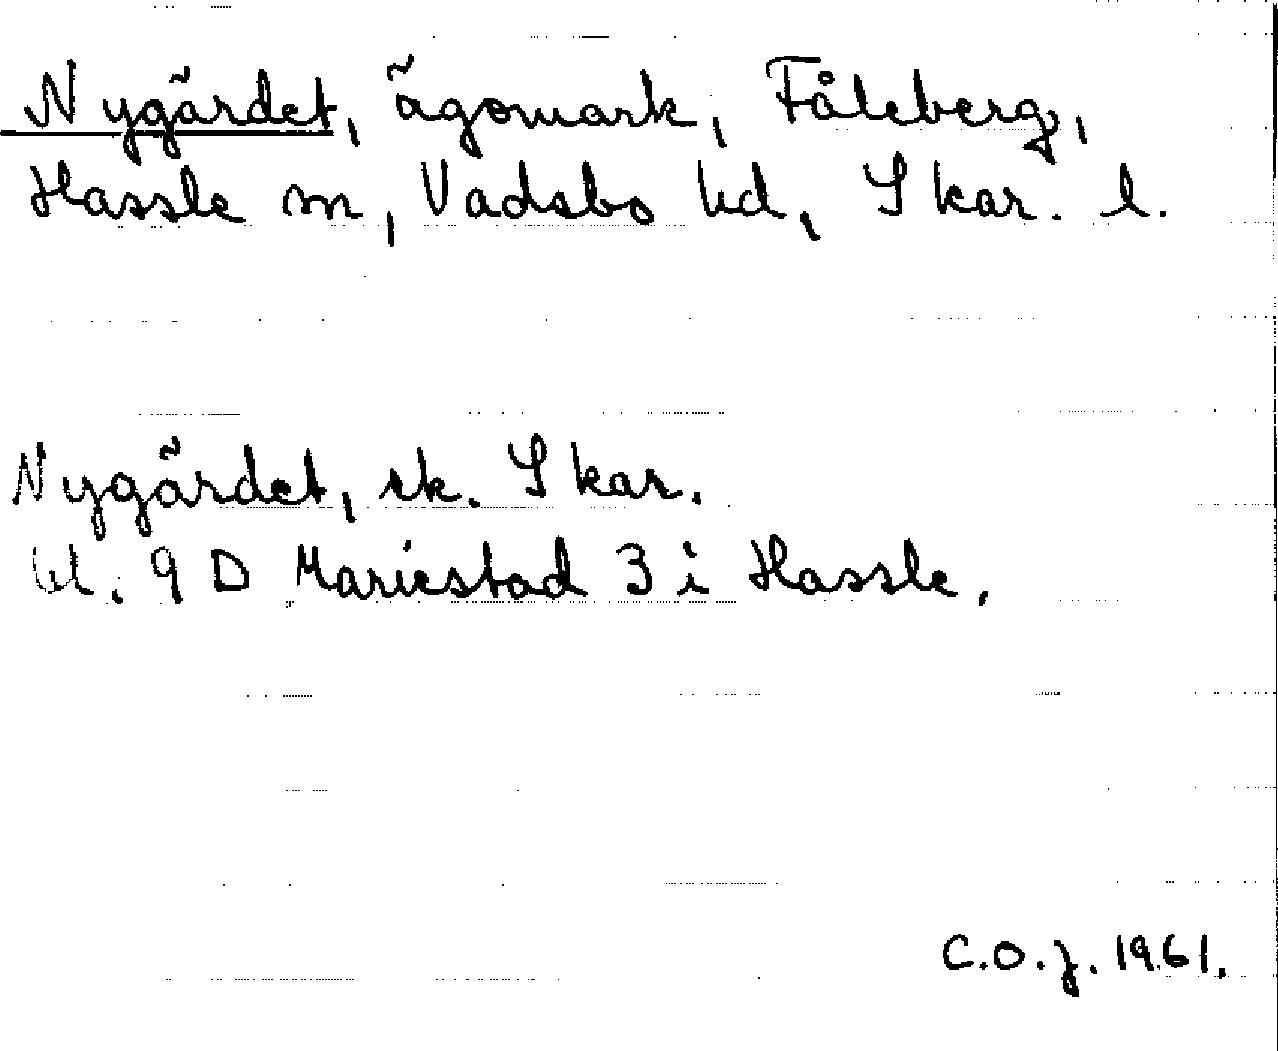 Nygärdet, ägomark, Fåleberg,
Hassle sn, Vadsbo hd, Skar. l.
Nygärdet, ek. Skar.
bl. 9 D Mariestad 3 i Hassle.
C.O.J. 1961.